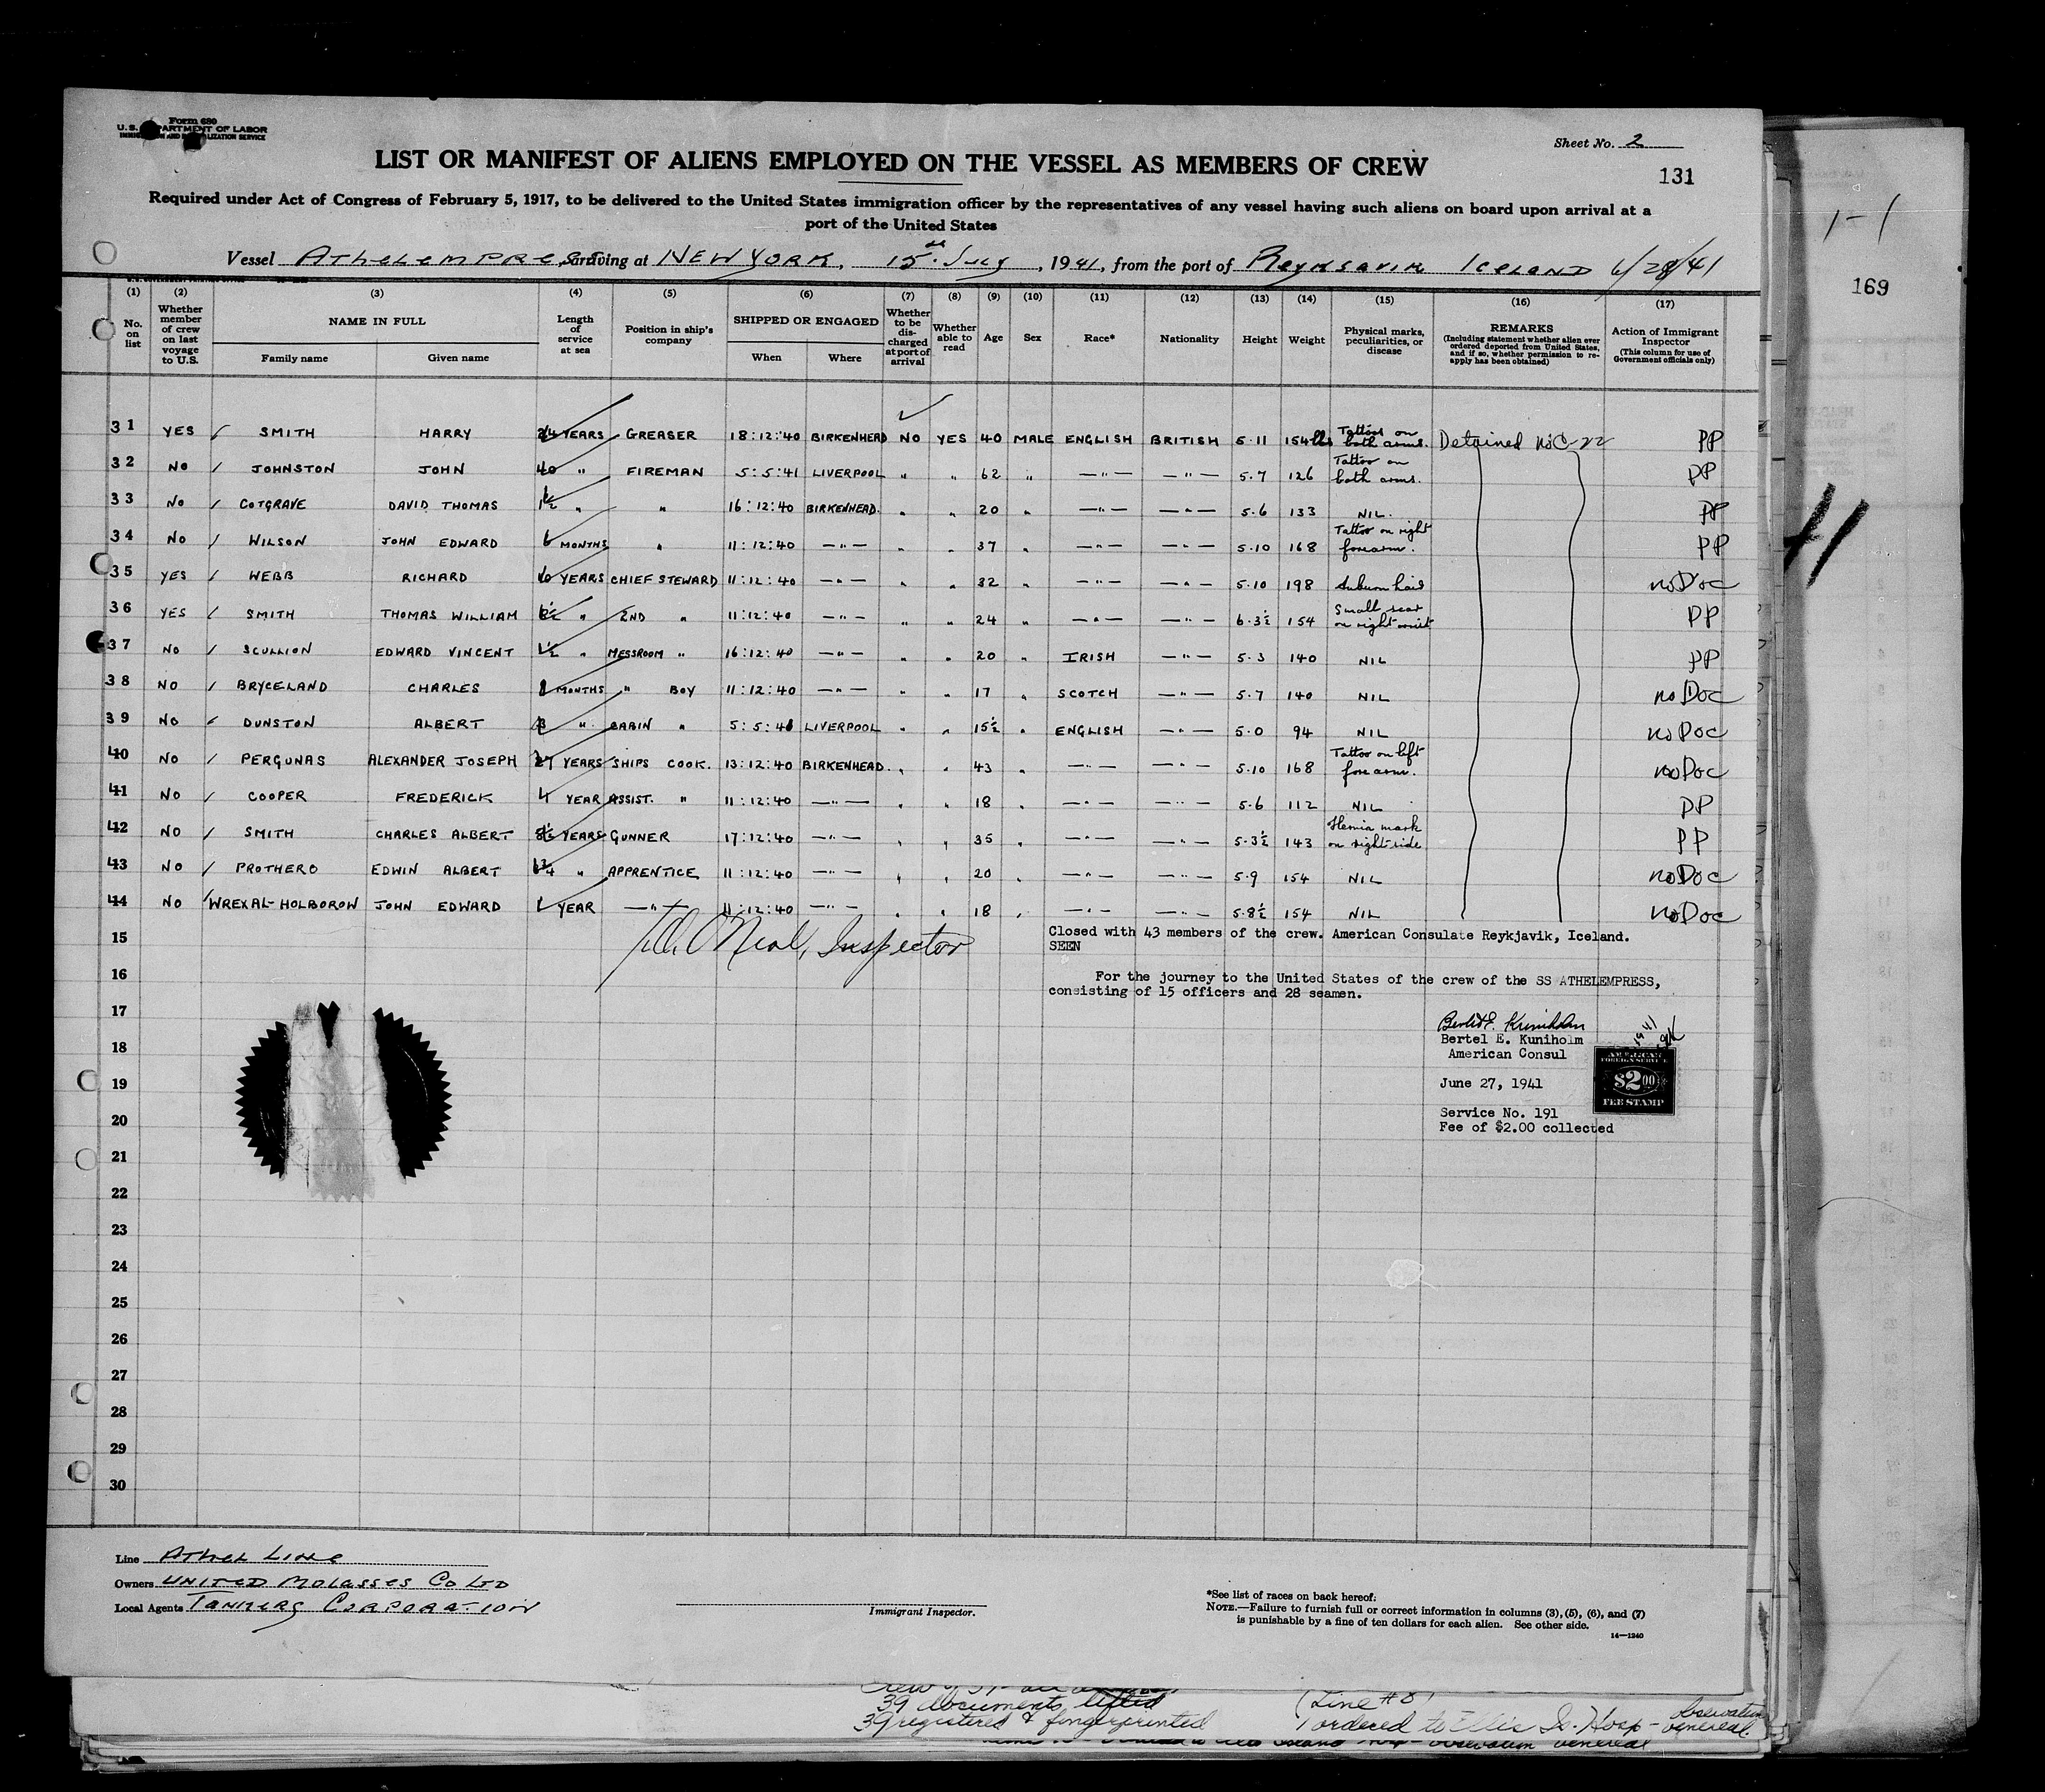 Form 680
U.S. DEPARTMENT OF LABOR
Sheet No. 2
LIST OR MANIFEST OF ALIENS EMPLOYED ON THE VESSEL AS MEMBERS OF CREW
131
Required under Act of Congress of February 5, 1917, to be delivered to the United States immigration officer by the representatives of any vessel having such aliens on board upon arrival at a
port of the United States
Vessel ATHELEMPRESS, arriving at NEW YORK, 15th July, 1941, from the port of REYKJAVIK ICELAND 6/28/41
(1) (2) (3) (4) (5) (6) (7) (8) (9) (10) (11) (12) (13) (14) (15) (16) (17)
No. on list | Whether member of crew on last voyage to U.S. | NAME IN FULL Family name Given name | Length of service at sea | Position in ship's company | SHIPPED OR ENGAGED When Where | Whether to be discharged at port of arrival | Whether able to read | Age | Sex | Race* | Nationality | Height | Weight | Physical marks, peculiarities, or disease | REMARKS (Including statement whether alien ever ordered deported from United States, and if so, whether permission to reapply has been obtained) | Action of Immigrant Inspector (This column for use of Government officials only)
31 YES / SMITH HARRY 24 YEARS GREASER 18:12:40 BIRKENHEAD NO YES 40 MALE ENGLISH BRITISH 5.11 154 lbs Tattoos on both arms. Detained PP
32 NO / JOHNSTON JOHN 40 " FIREMAN 5:5:41 LIVERPOOL " " 62 " —"— —"— 5.7 126 Tattoo on both arms. PP
33 NO / COTGRAVE DAVID THOMAS 1½ " " 16:12:40 BIRKENHEAD. " " 20 " —"— —"— 5.6 133 NIL. PP
34 NO / WILSON JOHN EDWARD 6 MONTHS " 11:12:40 —"— " " 37 " —"— —"— 5.10 168 Tattoo on right forearm. PP
35 YES / WEBB RICHARD YEARS CHIEF STEWARD 11:12:40 —"— " " 32 " —"— —"— 5.10 198 Auburn hair no Doc
36 YES / SMITH THOMAS WILLIAM " 2ND " 11:12:40 —"— " " 24 " —"— —"— 6.3½ 154 Small scar on right wrist PP
37 NO / SCULLION EDWARD VINCENT 1½ " MESSROOM " 16:12:40 —"— " " 20 " IRISH —"— 5.3 140 NIL PP
38 NO / BRYCELAND CHARLES MONTHS " BOY 11:12:40 —"— " " 17 " SCOTCH —"— 5.7 140 NIL no Doc
39 NO / DUNSTON ALBERT " CABIN " 5:5:41 LIVERPOOL " " 15½ " ENGLISH —"— 5.0 94 NIL no Doc
40 NO / PERGUNAS ALEXANDER JOSEPH 27 YEARS SHIPS COOK. 13:12:40 BIRKENHEAD. " " 43 " —"— —"— 5.10 168 Tattoo on left forearm. no Doc
41 NO / COOPER FREDERICK YEAR ASSIST. " 11:12:40 —"— " " 18 " —"— —"— 5.6 112 NIL PP
42 NO / SMITH CHARLES ALBERT YEARS GUNNER 17:12:40 —"— " " 35 " —"— —"— 5.3½ 143 Hernia mark on right side PP
43 NO / PROTHERO EDWIN ALBERT " APPRENTICE 11:12:40 —"— " " 20 " —"— —"— 5.9 154 NIL no Doc
44 NO / WREXAL-HOLBOROW JOHN EDWARD 1 YEAR —"— 11:12:40 —"— " " 18 " —"— —"— 5.8½ 154 NIL no Doc
O'Neal, Inspector
15 Closed with 43 members of the crew. American Consulate Reykjavik, Iceland.
SEEN
16 For the journey to the United States of the crew of the SS ATHELEMPRESS,
consisting of 15 officers and 28 seamen.
17
Bertel E. Kuniholm
Bertel E. Kuniholm
18
American Consul
AMERICAN
FOREIGN SERVICE
$2.00
FEE STAMP
19
June 27, 1941
20
Service No. 191
Fee of $2.00 collected
21
22
23
24
25
26
27
28
29
30
Line ATHEL LINE
Owners UNITED MOLASSES CO LTD
Local Agents TANKERS CORPORATION
Immigrant Inspector.
*See list of races on back hereof.
NOTE.—Failure to furnish full or correct information in columns (3), (5), (6), and (7)
is punishable by a fine of ten dollars for each alien. See other side.
14—1240
39 documents lifted
39 registered & fingerprinted
(Line #8)
1 ordered to Ellis Is. Hosp - observation venereal.
1-1
169
41